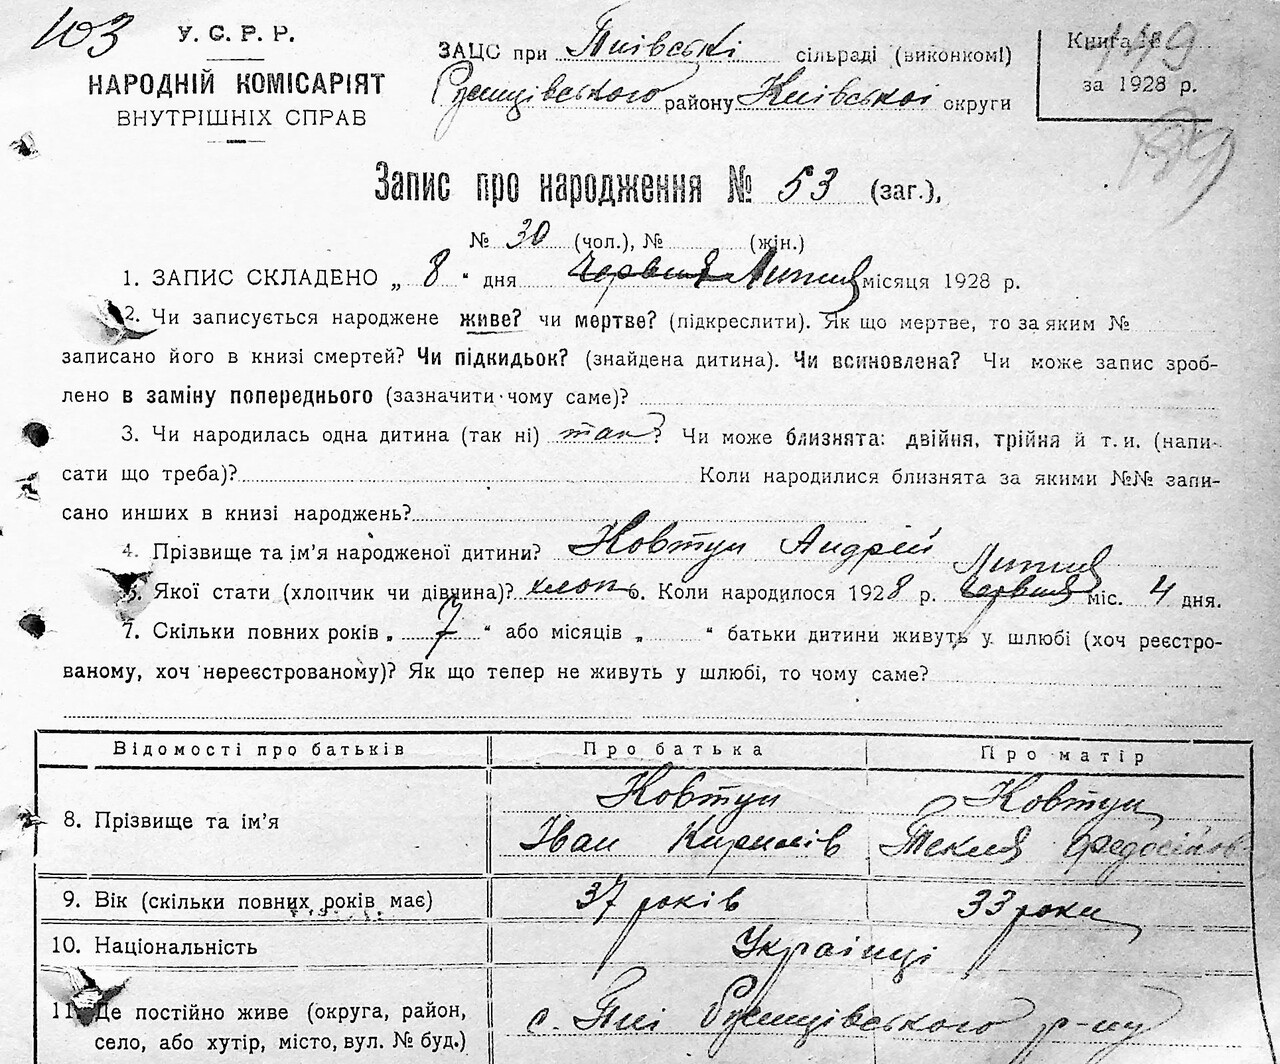 103
У. С. Р. Р.
НАРОДНІЙ КОМІСАРІЯТ
ВНУТРІШНІХ СПРАВ
ЗАЦС при Пиівські сільраді (виконкомі)
району Київської округи
Книга № 119
за 1928 р.
139
Запис про народження № 53 (заг.),
№ 30 (чол.), № (жін.)
1. ЗАПИС СКЛАДЕНО „ 8 “ дня Червня Липня місяця 1928 р.
2. Чи записується народжене живе? чи мертве? (підкреслити). Як що мертве, то за яким №
записано його в книзі смертей? Чи підкидьок? (знайдена дитина). Чи всиновлена? Чи може запис зроб-
лено в заміну попереднього (зазначити чому саме)?
3. Чи народилась одна дитина (так ні) так? Чи може близнята: двійня, трійня й т. и. (напи-
сати що треба)? Коли народилися близнята за якими №№ запи-
сано инших в книзі народжень?
4. Прізвище та ім’я народженої дитини? Ковтун Андрей
Липня
6. Якої стати (хлопчик чи дівчина)? хлоп. Коли народилося 1928 р. Червня міс. 4 дня.
7. Скільки повних років „ 7 “ або місяців „ “ батьки дитини живуть у шлюбі (хоч реєстро-
ваному, хоч нереєстрованому)? Як що тепер не живуть у шлюбі, то чому саме?
Відомості про батьків Про батька Про матір
8. Прізвище та ім’я Ковтун Іван Кирилів Ковтун Текля Федосіїов
9. Вік (скільки повних років має) 37 років 33 роки
10. Національність Українці
11. Де постійно живе (округа, район, с. Пиі р-ну
село, або хутір, місто, вул. № буд.)